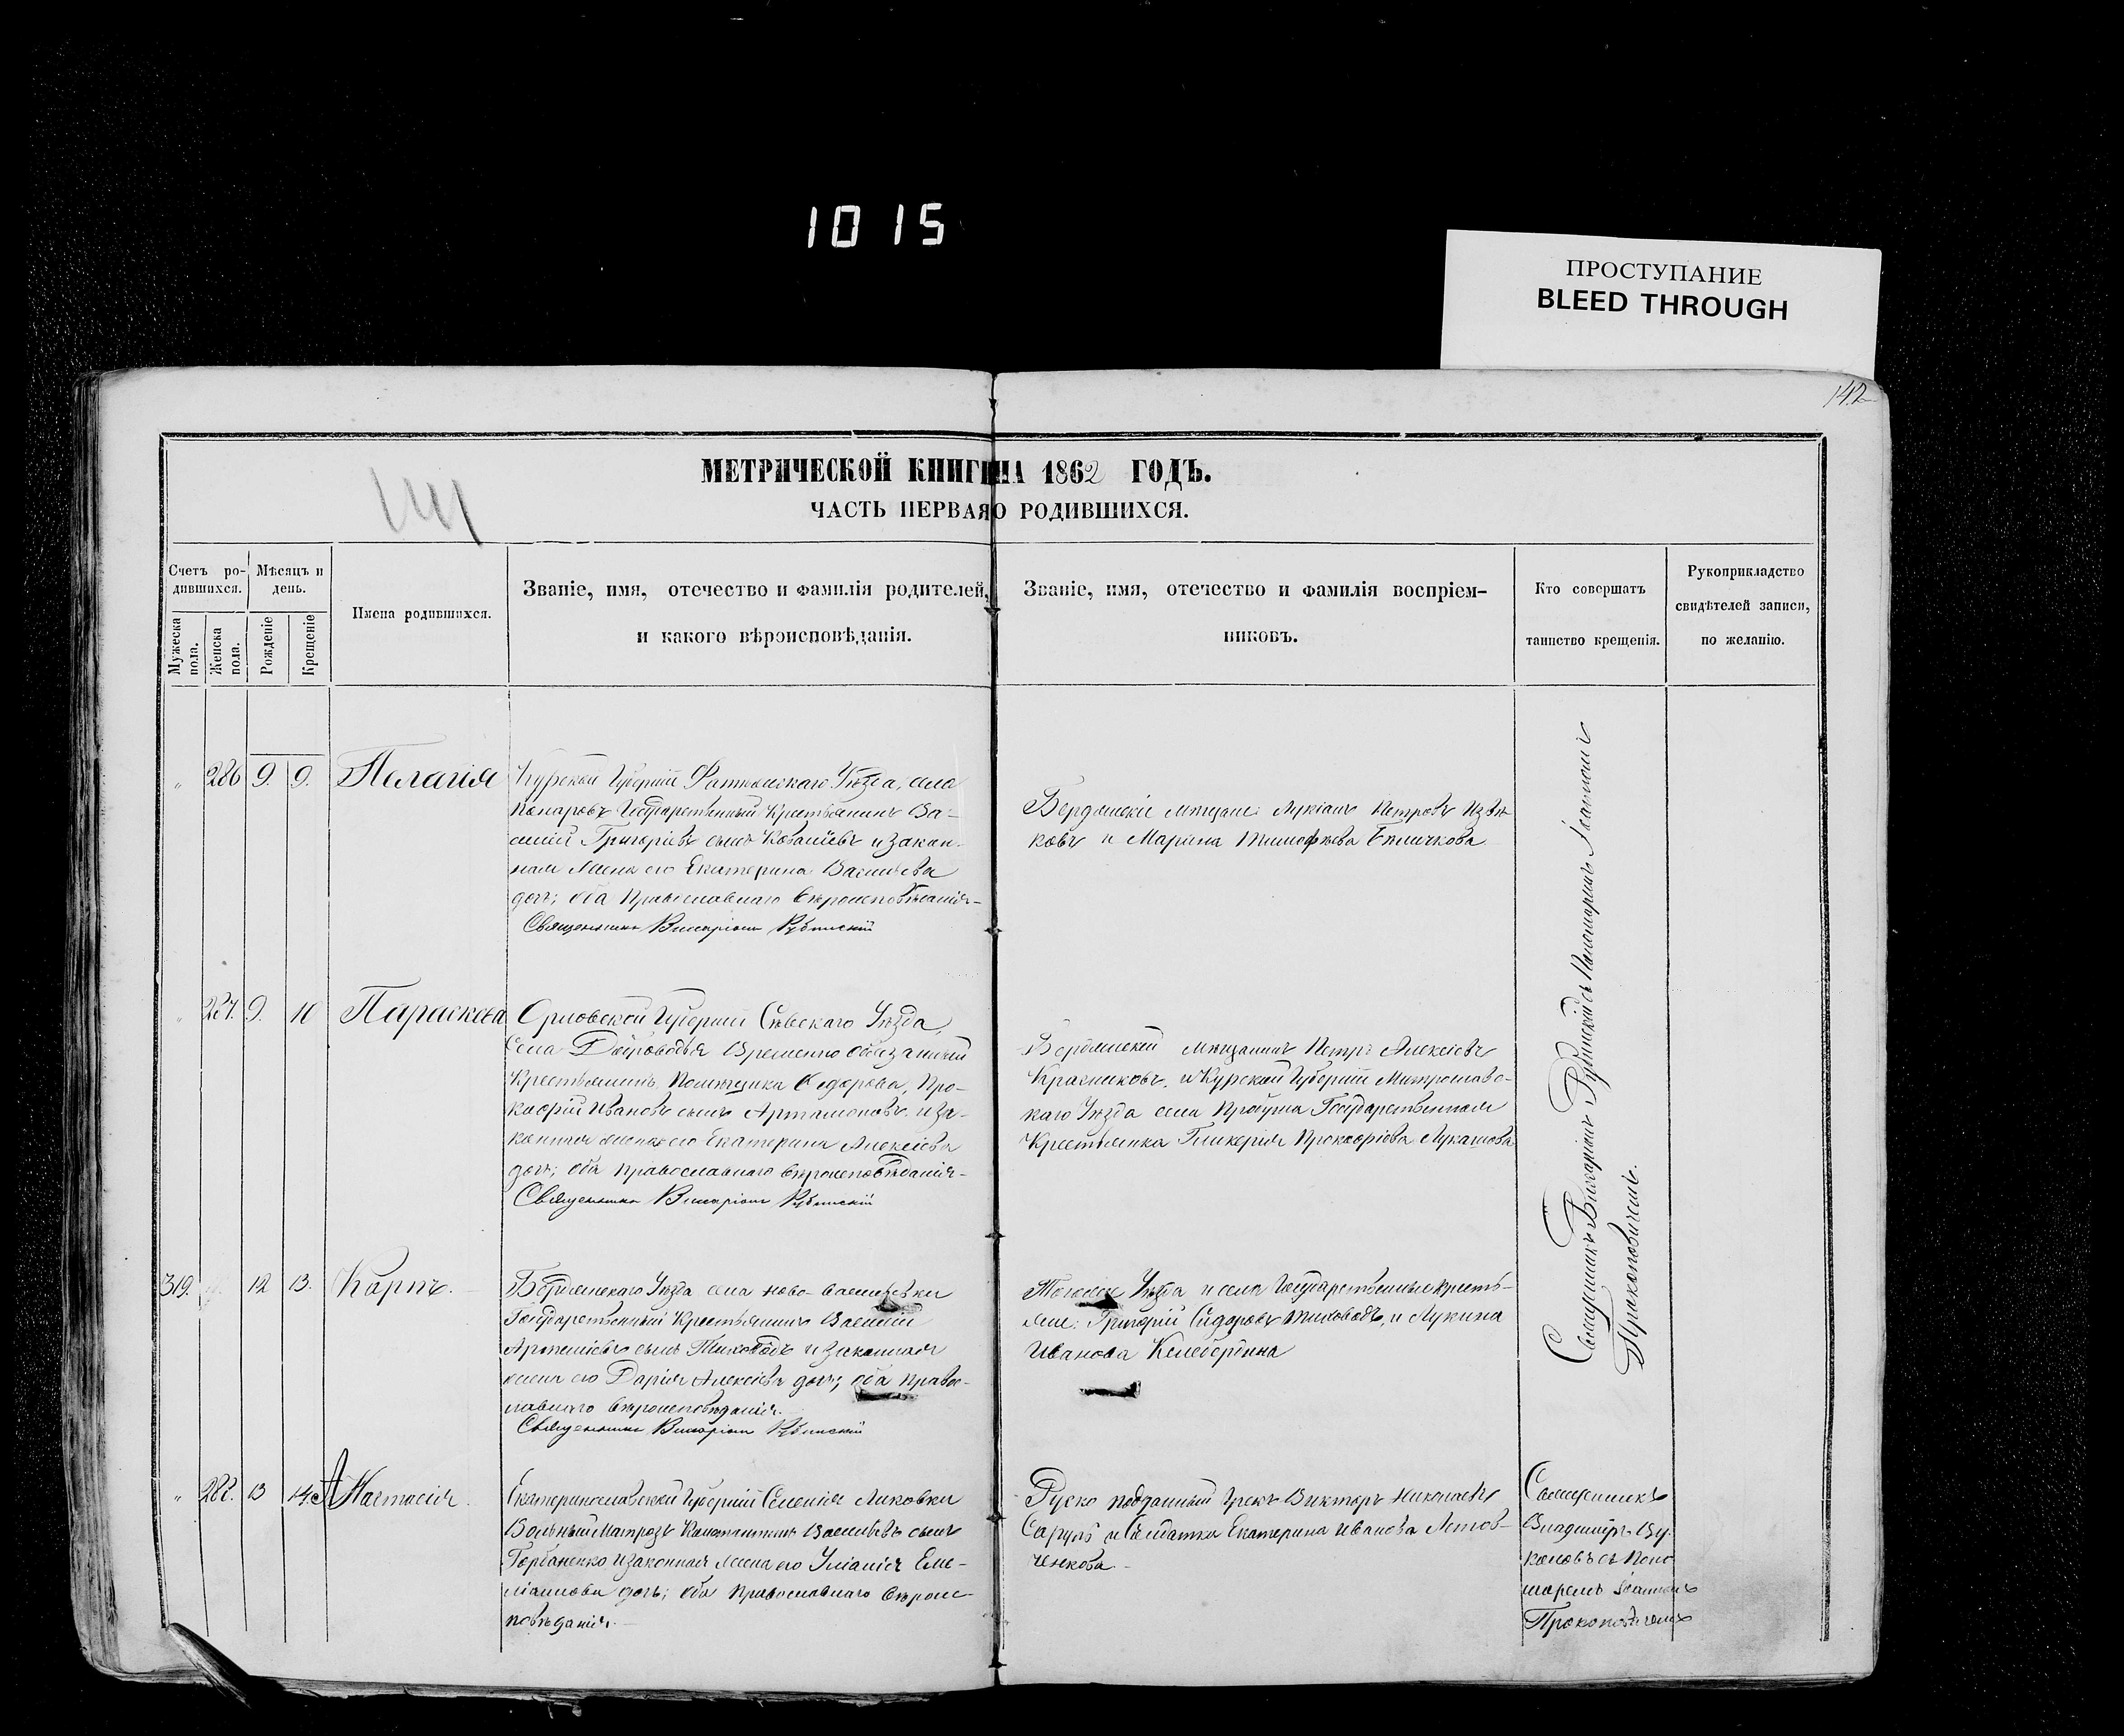 1015
ПРОСТУПАНИЕ
BLEED THROUGH
142
МЕТРИЧЕСКОЙ КНИГИ НА 1862 ГОДЪ.
ЧАСТЬ ПЕРВАЯ О РОДИВШИХСЯ.
Счетъ ро-
дившихся.
Мужеска пола.
Женска пола.
Мѣсяцъ и
день.
Рожденіе
Крещеніе
Имена родившихся.
Званіе, имя, отечество и фамилія родителей,
и какого вѣроисповѣданія.
Званіе, имя, отечество и фамилія воспріем-
никовъ.
Кто совершатъ
таинство крещенія.
Рукоприкладство
свидѣтелей записи,
по желанію.
" 286 9. 9. Пелагія
Курской Губерніи Фатежскаго Уѣзда, села
Государственный Крестьянинъ Ва-
силій Григорьевъ сынъ и закон-
ная жена его Екатерина Васильева
дочь; оба Православнаго вѣроисповѣданія-
Священникъ Викаріонъ Рубинскій
Бердянскіе мѣщане: Лукіанъ Петровъ
ковъ и Марина Тимофѣева
" 287. 9. 10 Параскева
Орловской Губерніи Сѣвскаго Уѣзда,
Села Временно обязанный
Крестьянинъ, Помѣщика Федорова, Про-
кофій Ивановъ сынъ Артамоновъ и за-
конная жена его Екатерина Алексіева
дочь; оба Православнаго вѣроисповѣданія-
Священникъ Викаріонъ Рубинскій
Бердянскій мѣщанинъ Петръ Алексіевъ
Красниковъ, и Курской Губерніи
каго Уѣзда села Государственная
Крестьянка Гликерія Прокофіева Лукашова
319. " 12 13. Карпъ.
Бердянскаго Уѣзда села Ново-Васильевки
Государственный Крестьянинъ Василій
Артеміевъ сынъ Тиховодъ и законная
жена его Дарія Алексіева дочь; оба право-
славнаго вѣроисповѣданія.
Священникъ Викаріонъ Рубинскій
Тогоже Уѣзда и села Государственные кресть-
яне: Григорій Сидоровъ Тиховодъ, и Лукина
Иванова Келебердина
Священникъ Викаріонъ Рубинскій съ Пономаремъ Іоанномъ
Прокоповичемъ.
" 288. 13 14. Анастасія.
Екатеринославской Губерніи Селенія Ликовки
Вольный Матрозъ Константинъ Васильевъ сынъ
Горбаненко и законная жена его Уліанія Еме-
ліанова дочь; оба православнаго вѣроис-
повѣданія.
Руско подданный Грекъ Викторъ Николаевъ
и Солдатка Екатерина Иванова
ченкова.
Священникъ
Владиміръ Ву-
коловъ съ Поно-
маремъ Іоанномъ
Прокоповичемъ